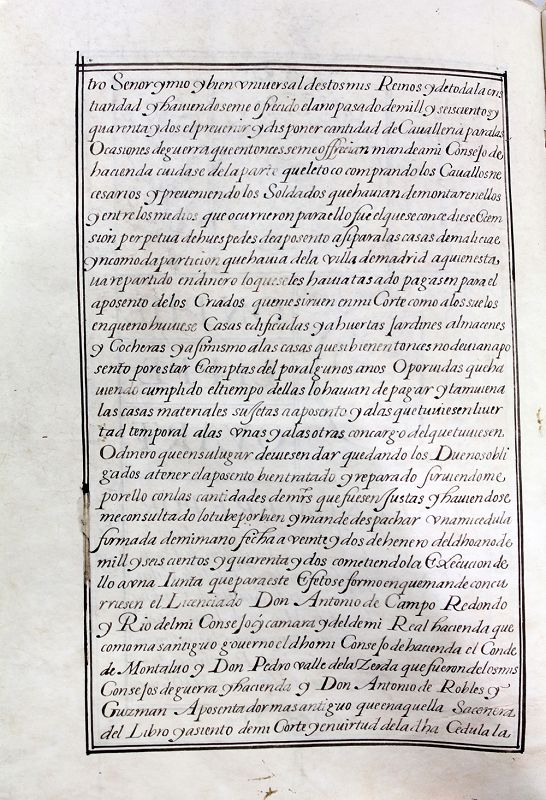 tro Senor y mio y bien vniversal destos mis Reinos y de toda la cris
tiandad y haviendoseme ofrecido el ano pasado de mill y seiscientos y
quarenta y dos el prevenir y disponer cantidad de Cavalleria para las
Ocasiones de guerra que entonces se me offrecian mande a mi Consejo de
hacienda cuidase de la parte que le toco comprando los Cauallos ne
cesarios y preveniendo los Soldados que havian de montar en ellos
y entre los medios que ocurrieron para ello fue el que se concediese Ecem
sion perpetua de huespedes de aposento asi para las casas de malicia e
yncomoda particion que havia de la villa de madrid a quien esta
va repartido en dinero lo que se les havia tasado pagasen para el
aposento de los Criados que me siruen en mi Corte como a los suelos
en que no huviese Casas edificadas y a huertas Jardines almacenes
y Cocheras y asimismo a las casas que si bien entonces no devian apo
sento por estar Ecemptas del por algunos anos O por vidas que ha
viendo cumplido el tiempo dellas lo havian de pagar y tamviena
las casas materiales sujetas a aposento y a las que tuviesen liver
tad temporal a las vnas y a las otras con cargo del que tuviesen
O dinero que en su lugar deviesen dar quedando los Duenos obli
gados a tener el aposento bien tratado y reparado sirviendome
por ello con las cantidades de mrs que fuesen Justas y haviendose
me consultado lo tube por bien y mande despachar vna mi cedula
firmada de mi mano fecha a veinte y dos de henero del dho ano de
mill y seiscientos y quarenta y dos cometiendo la Execucion de
llo a vna Junta que para este Efeto se formo en que mande concu
rriesen el Licenciado Don Antonio de Campo Redondo
y Rio del mi Consejo y camara y del de mi Real hacienda que
como mas antiguo governo el dho mi Consejo de hacienda el Conde
de Montalvo y Don Pedro valle de la Zerda que fueron de los mis
Consejos de guerra y hacienda y Don Antonio de Robles y
Guzman Aposentador mas antiguo que en aquella Sacenera
del Libro y asiento de mi Corte y en virtud de la dha Cedula la